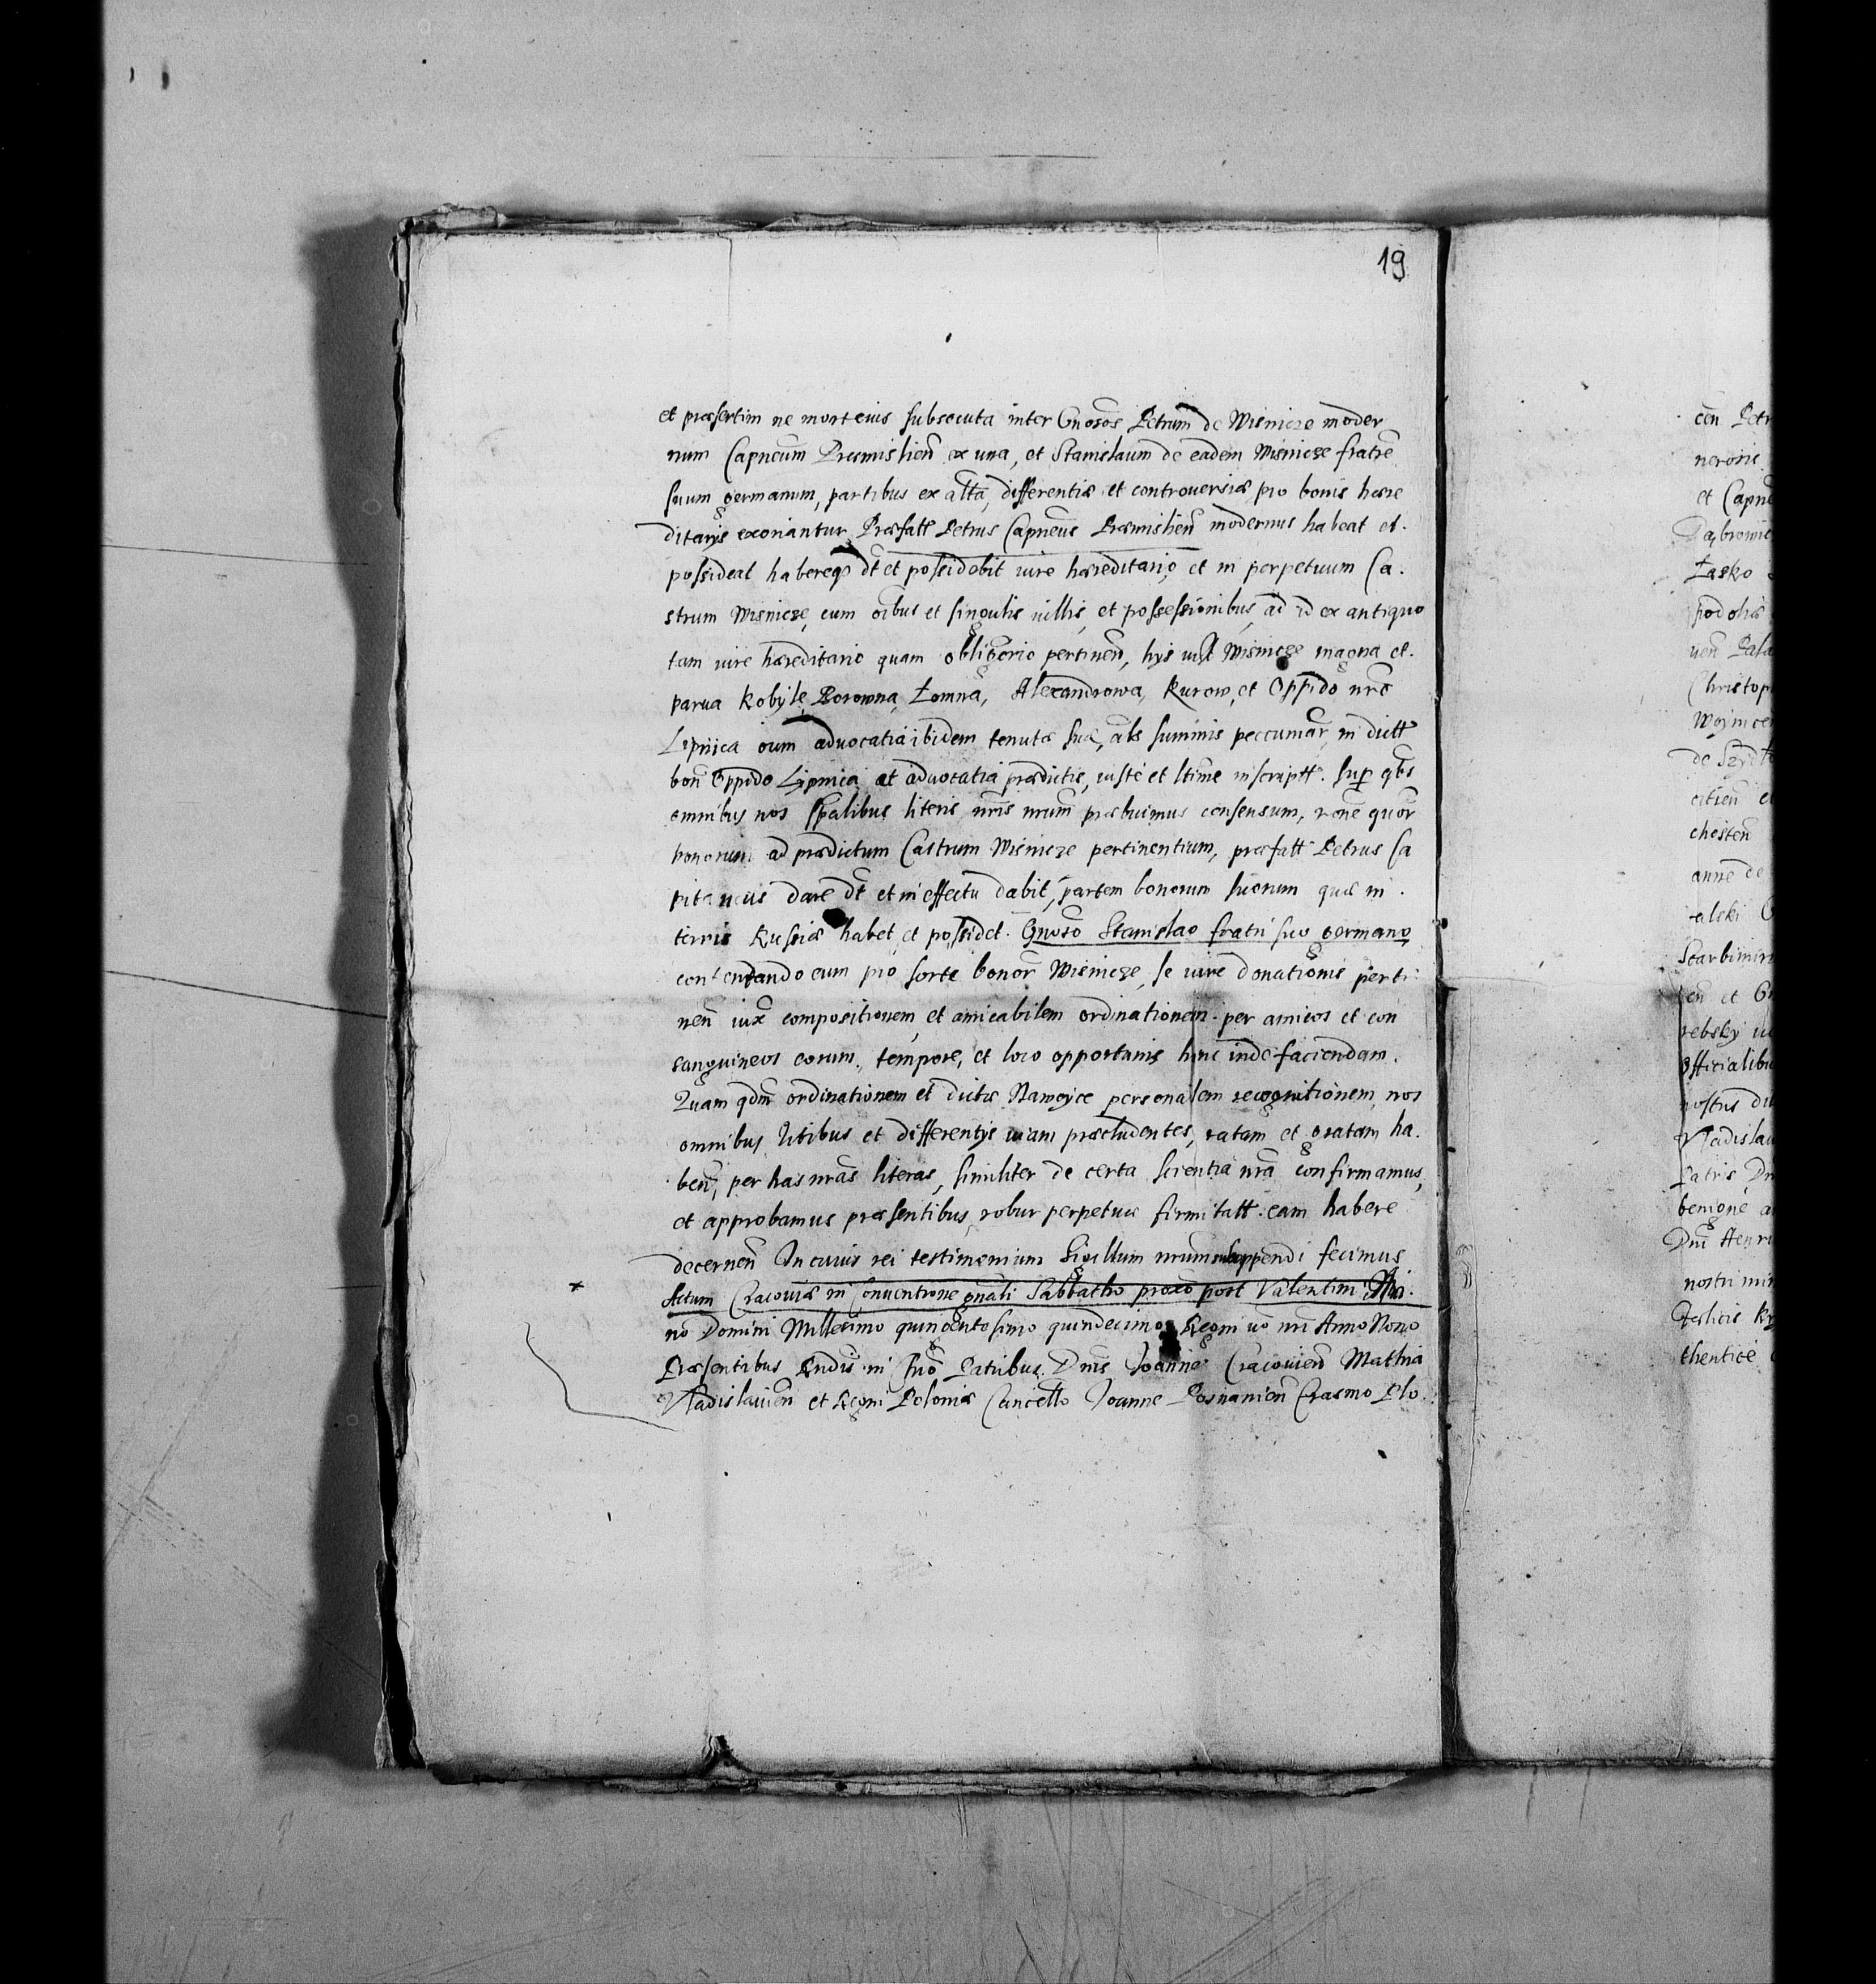 19
et præsertim ne mort eius subsecuta inter Gnosos Petrum de Wisnicze moder
num Capneum Præmislien̄ ex una, et Stanislaum de eadem Wisnicze fratrē
suum germanum, partibus ex alta, differentiæ et controuersiæ pro bonis hære
ditarijs exoriantur, Præfatt Petrus Capneus Præmislien̄ modernus habeat et.
possideat habereqȝ dt et possidebit iure hæreditario, et in perpetuum Ca.
strum Wisnicze, cum oībus et singulis uillis, et possessionibus, ad id ex antiquo
tam iure hæreditario quam obligorio pertinen̄, hys Wisnicze magna et.
parua Kobyle, Borowna, Łomna, Alexandrowa, Kurow, et Oppido nrō
Lipnica cum aduocatia ibidem tenutæ suæ, als summis peccuniar̄, in dictt
bon̄ Oppido Lipnica et aduocatia prædictis, iuste et ltime inscriptt. Sup qbs
omnibus nos spalibus literis nris nrum præbuimus consensum, rōne quor̄
bonorum ad prædictum Castrum Wisnicze pertinentium, præfatt Petrus Ca
pitaneus dare dt et in effectu dabit, partem bonorum suorum quæ in.
terris Russiæ habet et possidet. Gnoso Stanislao fratri suo germano
contentando eum pro sorte bonor̄ Wisnicze, se iure donationis perti
nen̄ iux compositionem, et amicabilem ordinationem. per amicos et con
sanguineos eorum, tempore, et loco opportunis hinc inde faciendam.
Quam qdm ordinationem et dictæ Nawoyce personalem recognitionem, nos
omnibus litibus et differentijs uiam præcludentes, ratam et gratam ha.
ben̄, per has nras literas, similiter de certa scientia nra confirmamus,
et approbamus præsentibus, robur perpetuæ firmitatt. eam habere
decernen̄ In cuius rei testimonium Sigillum nrum subappendi fecimus
Actum Cracouiæ in Conuentione gnali Sabbatho proxo post Valentini An.
no Domini Millesimo quingentesimo quindecimo, Regni uo nri Anno Nono
Præsentibus Rndis in Chro Patribus. Dnis Joanne Cracouien̄ Mathia
Vladislauien̄ et Regni Poloniæ Cancello Joanne Posnanien̄ Erasmo Plo.
cen Petr
nerosis
et Capne
Dąbrowic
Łasko
podoliæ
uen Pala
Christop
Woynice
chesten
anne de
alski
rebsky
Officialibu
nostris
Vladislau
patris Dn
Dni Henri
nostri
thentice